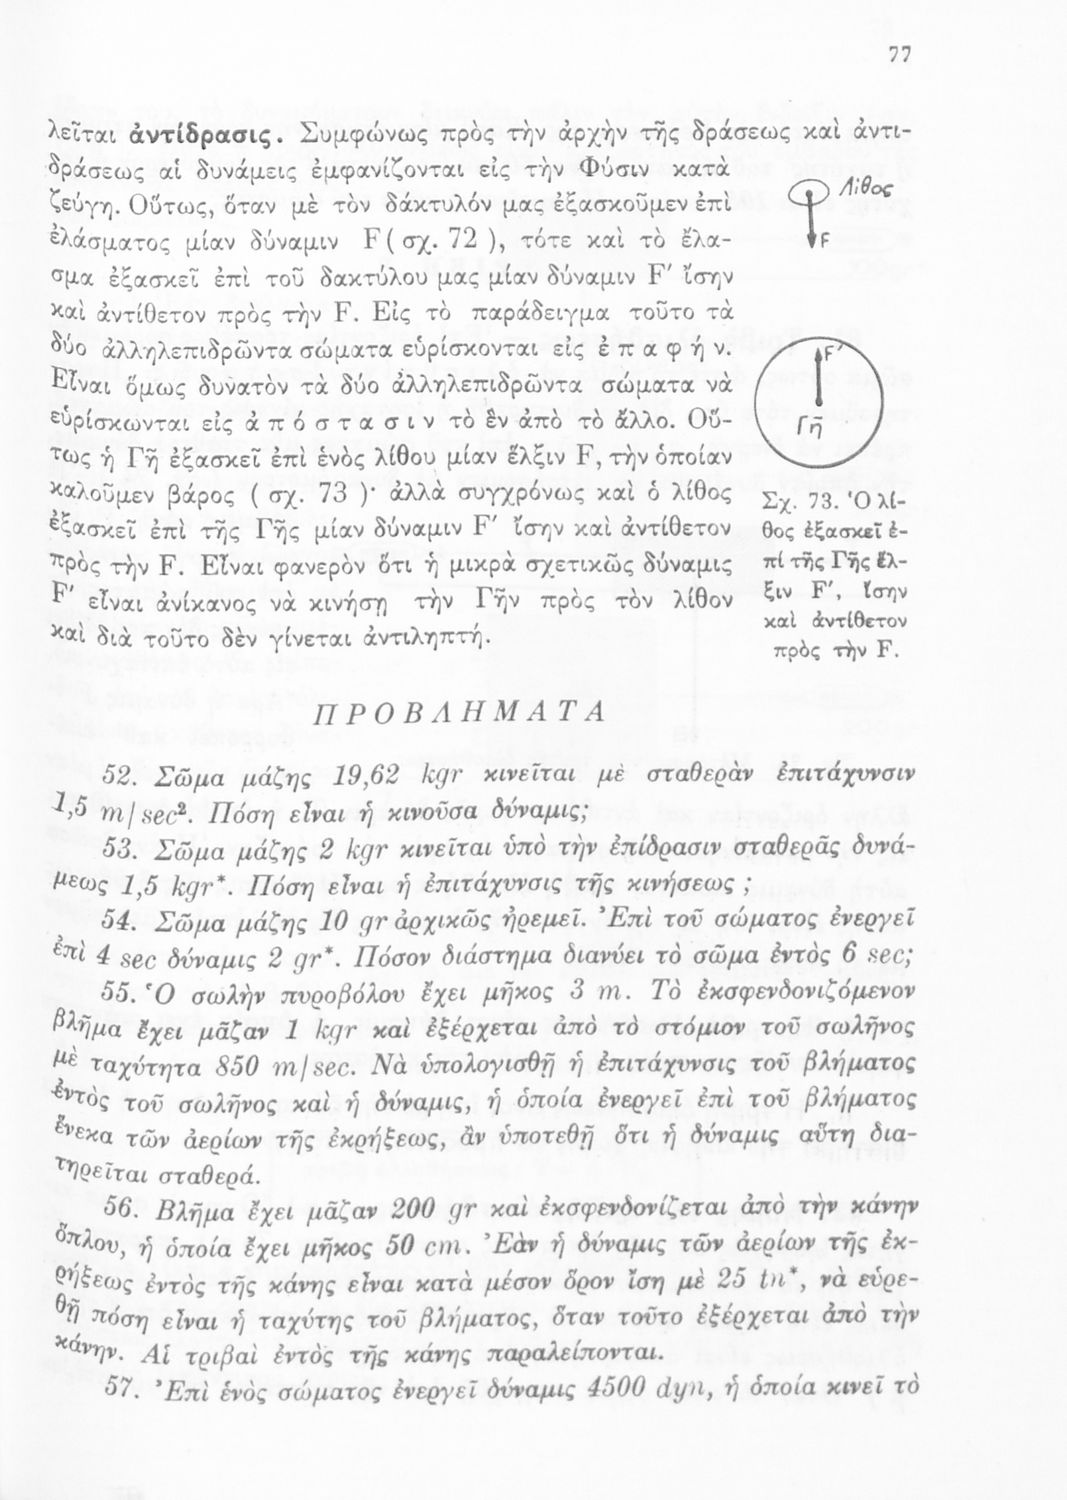 77
λεῖται ἀντίδρασις. Συμφώνως πρὸς τὴν ἀρχὴν τῆς δράσεως καὶ ἀντι-
δράσεως αἱ δυνάμεις ἐμφανίζονται εἰς τὴν Φύσιν κατὰ
ζεύγη. Οὕτως, ὅταν μὲ τὸν δάκτυλόν μας ἐξασκοῦμεν ἐπὶ
ἐλάσματος μίαν δύναμιν F ( σχ. 72 ), τότε καὶ τὸ ἔλα-
σμα ἐξασκεῖ ἐπὶ τοῦ δακτύλου μας μίαν δύναμιν F′ ἴσην
καὶ ἀντίθετον πρὸς τὴν F. Εἰς τὸ παράδειγμα τοῦτο τὰ
δύο ἀλληλεπιδρῶντα σώματα εὑρίσκονται εἰς ἐ π α φ ή ν.
Εἶναι ὅμως δυνατὸν τὰ δύο ἀλληλεπιδρῶντα σώματα νὰ
εὑρίσκωνται εἰς ἀ π ό σ τ α σ ι ν τὸ ἓν ἀπὸ τὸ ἄλλο. Οὕ-
τως ἡ Γῆ ἐξασκεῖ ἐπὶ ἑνὸς λίθου μίαν ἕλξιν F, τὴν ὁποίαν
καλοῦμεν βάρος ( σχ. 73 )· ἀλλὰ συγχρόνως καὶ ὁ λίθος
ἐξασκεῖ ἐπὶ τῆς Γῆς μίαν δύναμιν F′ ἴσην καὶ ἀντίθετον
πρὸς τὴν F. Εἶναι φανερὸν ὅτι ἡ μικρὰ σχετικῶς δύναμις
F′ εἶναι ἀνίκανος νὰ κινήσῃ τὴν Γῆν πρὸς τὸν λίθον
καὶ διὰ τοῦτο δὲν γίνεται ἀντιληπτή.
Λίθος
F
F′
Γῆ
Σχ. 73. Ὁ λί-
θος ἐξασκεῖ ἐ-
πὶ τῆς Γῆς ἕλ-
ξιν F′, ἴσην
καὶ ἀντίθετον
πρὸς τὴν F.
ΠΡΟΒΛΗΜΑΤΑ
52. Σῶμα μάζης 19,62 kgr κινεῖται μὲ σταθερὰν ἐπιτάχυνσιν
1,5 m/sec². Πόση εἶναι ἡ κινοῦσα δύναμις;
53. Σῶμα μάζης 2 kgr κινεῖται ὑπὸ τὴν ἐπίδρασιν σταθερᾶς δυνά-
μεως 1,5 kgr*. Πόση εἶναι ἡ ἐπιτάχυνσις τῆς κινήσεως ;
54. Σῶμα μάζης 10 gr ἀρχικῶς ἠρεμεῖ. Ἐπὶ τοῦ σώματος ἐνεργεῖ
ἐπὶ 4 sec δύναμις 2 gr*. Πόσον διάστημα διανύει τὸ σῶμα ἐντὸς 6 sec;
55. Ὁ σωλὴν πυροβόλου ἔχει μῆκος 3 m. Τὸ ἐκσφενδονιζόμενον
βλῆμα ἔχει μᾶζαν 1 kgr καὶ ἐξέρχεται ἀπὸ τὸ στόμιον τοῦ σωλῆνος
μὲ ταχύτητα 850 m/sec. Νὰ ὑπολογισθῇ ἡ ἐπιτάχυνσις τοῦ βλήματος
ἐντὸς τοῦ σωλῆνος καὶ ἡ δύναμις, ἡ ὁποία ἐνεργεῖ ἐπὶ τοῦ βλήματος
ἕνεκα τῶν ἀερίων τῆς ἐκρήξεως, ἂν ὑποτεθῇ ὅτι ἡ δύναμις αὕτη δια-
τηρεῖται σταθερά.
56. Βλῆμα ἔχει μᾶζαν 200 gr καὶ ἐκσφενδονίζεται ἀπὸ τὴν κάνην
ὅπλου, ἡ ὁποία ἔχει μῆκος 50 cm. Ἐὰν ἡ δύναμις τῶν ἀερίων τῆς ἐκ-
ρήξεως ἐντὸς τῆς κάνης εἶναι κατὰ μέσον ὅρον ἴση μὲ 25 tn*, νὰ εὑρε-
θῇ πόση εἶναι ἡ ταχύτης τοῦ βλήματος, ὅταν τοῦτο ἐξέρχεται ἀπὸ τὴν
κάνην. Αἱ τριβαὶ ἐντὸς τῆς κάνης παραλείπονται.
57. Ἐπὶ ἑνὸς σώματος ἐνεργεῖ δύναμις 4500 dyn, ἡ ὁποία κινεῖ τὸ